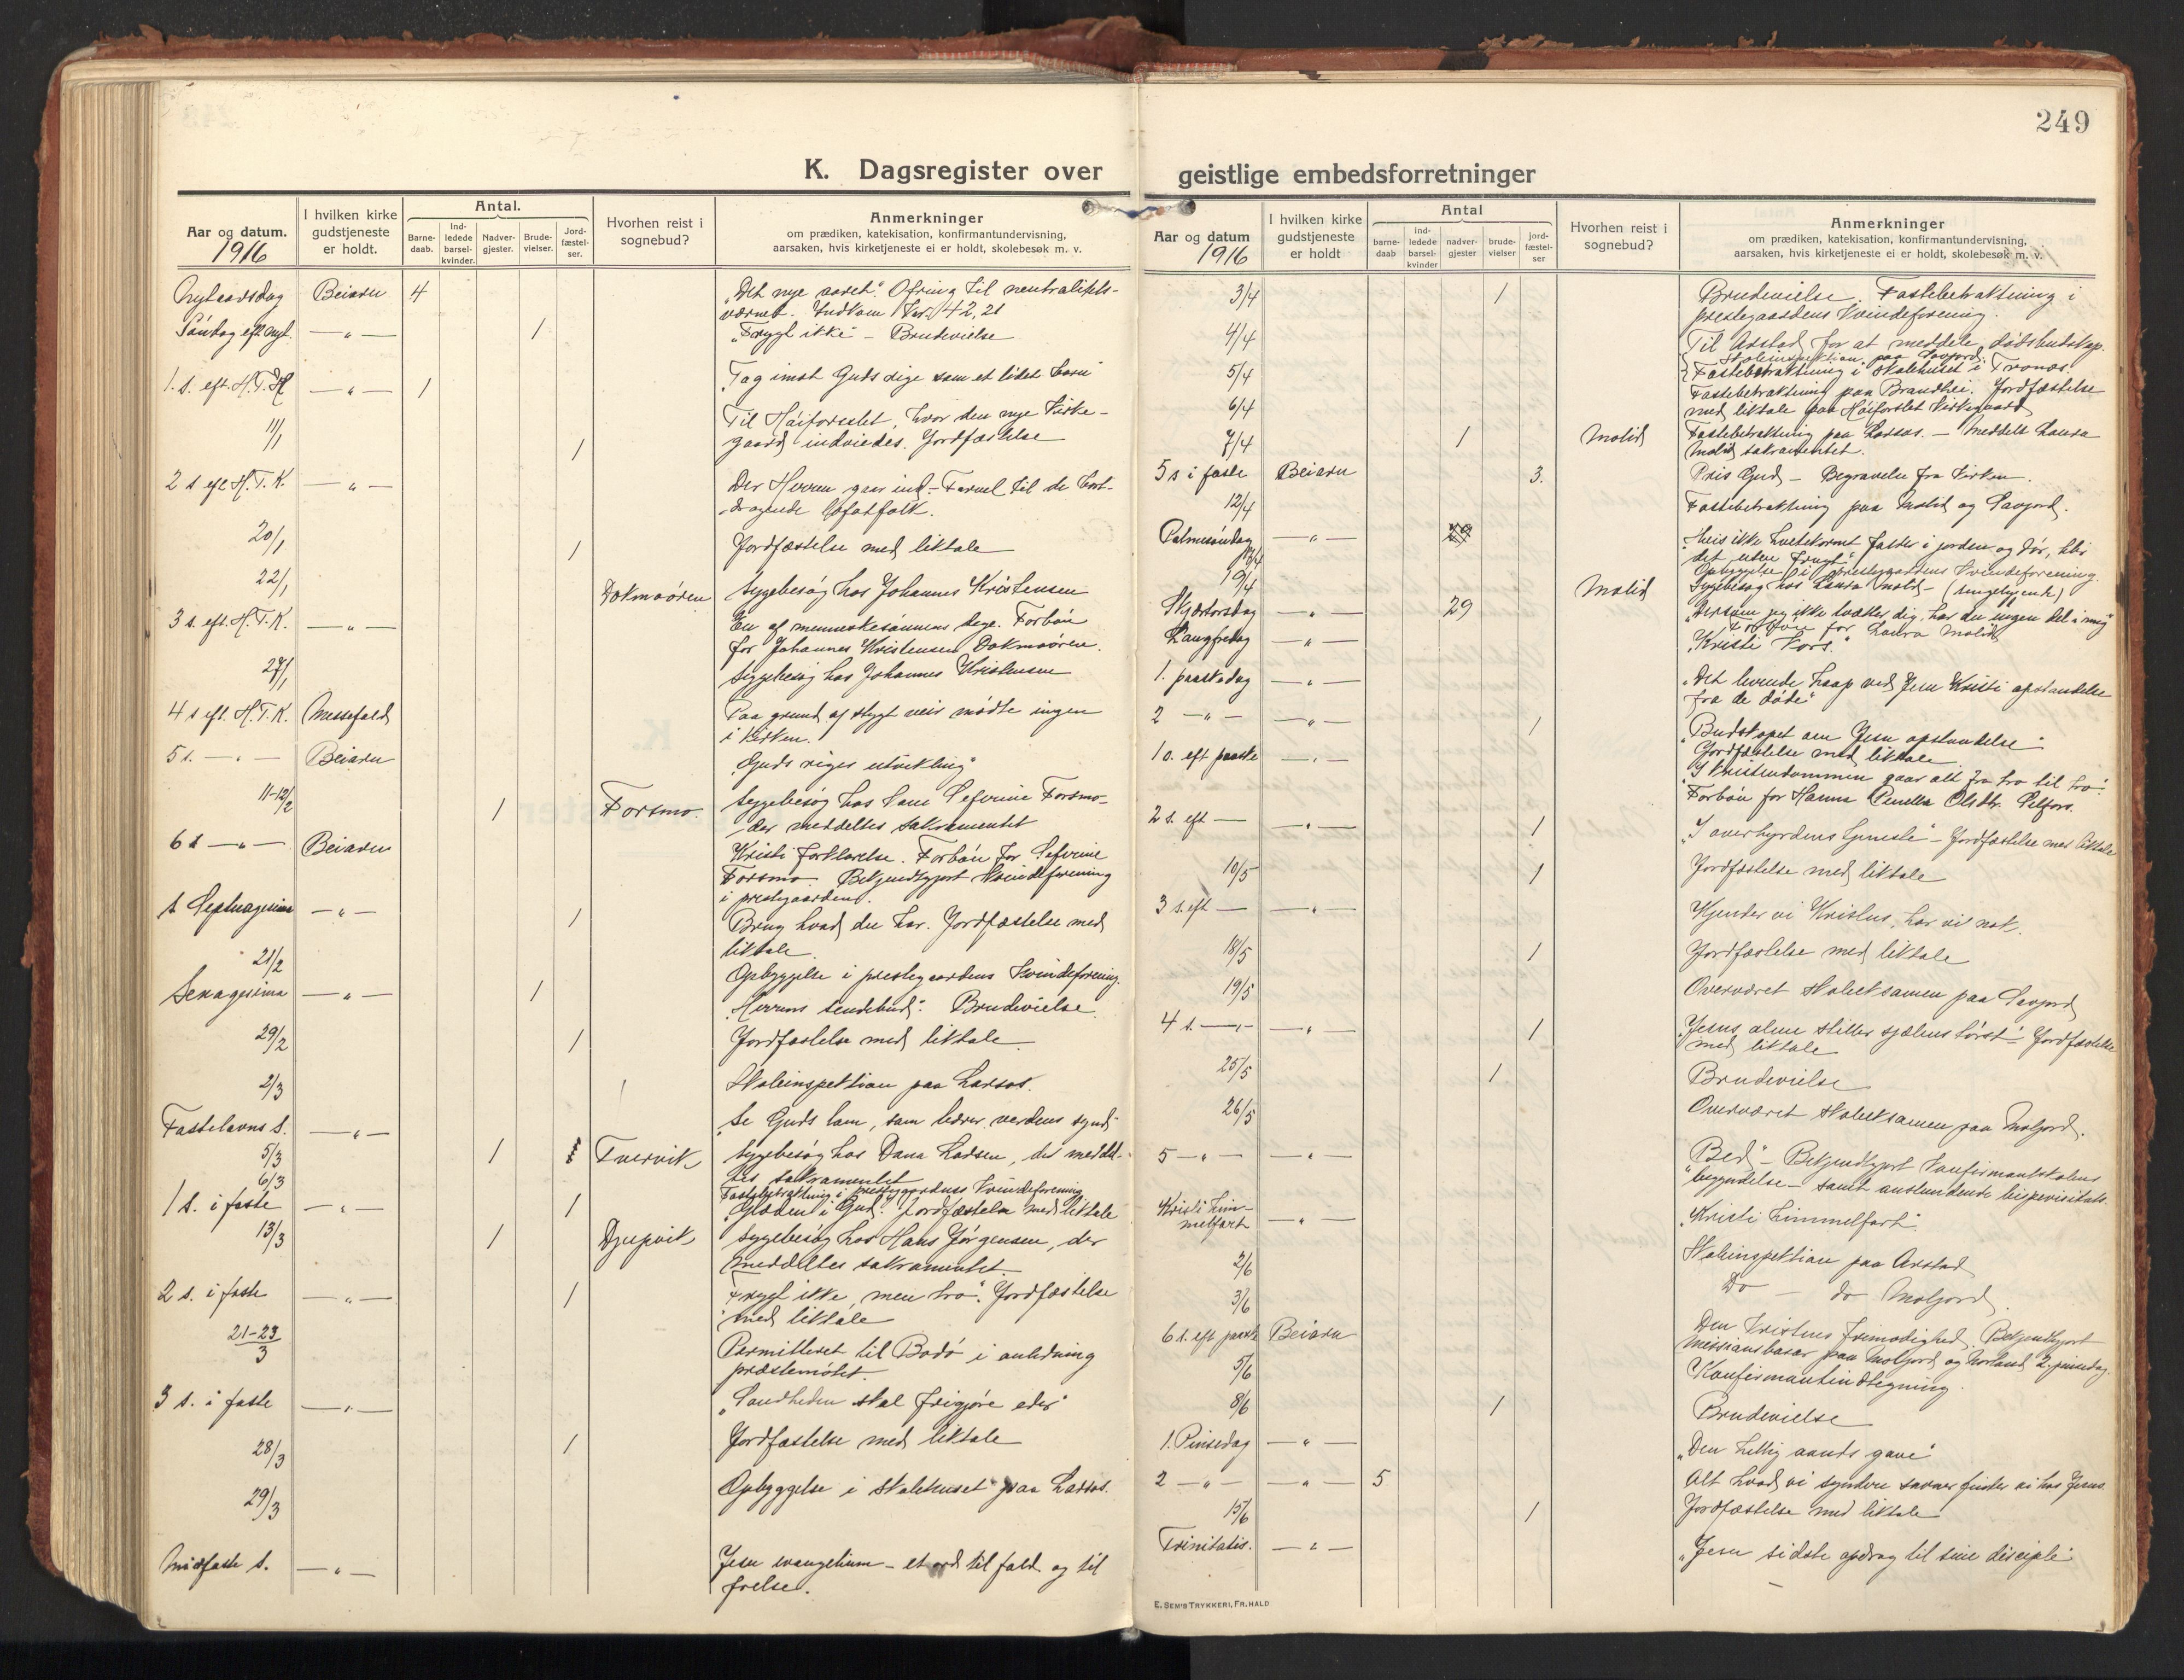 249
K. Dagsregister over geistlige embedsforretninger
Aar og datum. 1916
I hvilken kirke gudstjeneste er holdt.
Antal.
Barne-daab.
Ind-ledede barsel-kvinder.
Nadver-gjester.
Brude-vielser.
Jord-fæstel-ser.
Hvorhen reist i sognebud?
Anmerkninger
om prædiken, katekisation, konfirmantundervisning,
aarsaken, hvis kirketjeneste ei er holdt, skolebesøk m. v.
Nytaarsdag Beiarn 4 "Det nye aaret". Ofring til neutralitets-
værnet. Indkom Kr. 42,21
Søndag eft. nyt. — " — 1 "Frygt ikke" - Brudevielse
1. s. eft. H.T.K — " — 1 "Tag imot Guds rige som et lidet barn"
11/1 1 Til Høiforslet, hvor den nye kirke-
gaard indviedes. Jordfæstelse
2 s eft H.T.K. — " — Der Herren gaar ind. - Farvel til de bort-
dragende lofotfolk.
20/1 1 Jordfæstelse med liktale
22/1 Dokmoøren Sygebesøg hos Johannes Kristensen
3 s. eft. H.T.K. — " — En af menneskesønnens dage. Forbøn
for Johannes Kristensen Dokmoøren.
27/1 Sygebesøg hos Johannes Kristensen
4 s eft. H.T.K. Messefald Paa grund af stygt veir mødte ingen
i kirken.
5 s. — " — Beiarn "Guds riges utvikling"
11-12/2 1 Forsmo. Sygebesøg hos Seferine Forsmo-
der meddeltes sakramentet
6 s — " — Beiarn Kristi forklarelse. Forbøn for Seferine
Forsmo. Bekjendtgjort Kvindeforening
i prestegaarden.
s. Septuagesima — " — 1 Brug hvad du har. Jordfæstelse med
liktale.
21/2 Opbyggelse i prestegaardens Kvindeforening.
Sexagesima — " — 1 "Herrens sendebud". Brudevielse.
29/2 1 Jordfæstelse med liktale.
2/3 Skoleinspektion paa Larsos.
Fastelavns s. — " — "Se Guds lam, som bærer verdens synd"
5/3 1 Tvervik Sygebesøg hos Dana Ladsen, der meddel-
tes sakramentet
6/3 Fastebetraktning i prestegaardens Kvindeforening
1 s. i faste — " — 1 "Glæden i Gud." Jordfæstelse med liktale
13/3 1 Djupvik Sygebesøg hos Hans Jørgensen, der
meddeltes sakramentet.
2 s. i faste — " — 1 "Frygt ikke, men tro". Jordfæstelse
med liktale
21-23/3 Permitteret til Bodø i anledning
præstemøtet.
3 s. i faste — " — "Sandheden skal frigjøre eder"
28/3 1 Jordfæstelse med liktale
29/3 Opbyggelse i skolehuset paa Larsos.
Midfaste s. — " — Jesu evangelium - et ord til fald og til
frelse.
Aar og datum 1916
I hvilken kirke gudstjeneste er holdt
Antal
barne-daab
ind-ledede barsel-kvinder
nadver-gjester
brude-vielser
jord-fæstel-ser
Hvorhen reist i sognebud?
Anmerkninger
om prædiken, katekisation, konfirmantundervisning,
aarsaken, hvis kirketjeneste ei er holdt, skolebesøk m. v.
3/4 1 Brudevielse. Fastebetraktning i
prestegaardens Kvindeforening.
4/4 Til Arstad for at meddele dødsbudskap.
Skoleinspektion paa Savjord.
5/4 Fastebetraktning i skolehuset i Tronos.
6/4 Fastebetraktning paa Brandhei. Jordfæstelse
med liktale paa Høiforslet kirkegaard
7/4 1 Molid Fastebetraktning paa Larsos. - Meddelt Laura
Molid sakramentet.
5 s i faste Beiarn 3. Pris Gud - Begravelse fra kirken.
12/4 Fastebetraktning paa Molid og Savjord.
Palmesøndag — " — 29 "Hvis ikke hvetekornet falder i jorden og dør, blir
det uten frugt"
Opbyggelse i prestegaardens Kvindeforening.
19/4 Molid Sygebesøg hos Laura Molid - (sengeliggende)
Skjærtorsdag — " — 29 "Dersom jeg ikke tvætter dig, har du ingen del i mig"
Forbøn for Laura Molid
Langfredag — " — "Kristi Kors."
1. paaskedag — " — "Det levende haap ved Jesu Kristi opstandelse
fra de døde"
2 — " — — " — 1 "Budskapet om Jesu opstandelse"
Jordfæstelse med liktale
1 s. eft paaske — " — "I kristendommen gaar alt fra tro til tro".
Forbøn for Hanna Penella Olsdtr. Selfors.
2 s. eft — — " — 1 "I overhyrdens tjeneste" - Jordfæstelse med liktale
10/5 1 Jordfæstelse med liktale
3 s. eft — — " — Kjender vi Kristus, har vi nok.
18/5 1 Jordfæstelse med liktale
19/5 Overværet skoleeksamen paa Savjord
4 s. — " — — " — 1 "Jesus alene stiller sjælens tørst" Jordfæstelse
med liktale
25/5 1 Brudevielse
26/5 Overværet skoleeksamen paa Moljord.
5 — " — — " — "Bed" - Bekjendtgjort konfirmantskolens
begyndelse - samt anstundende bispevisitats.
Kristi him-
melfart — " — "Kristi himmelfart".
2/6 Skoleinspektion paa Arstad
3/6 Do — do Moljord.
6 s. eft paaske Beiarn Den kristnes frimodighed. Bekjendtgjort
missionsbasar paa Moljord og Morland 2. pinsedag.
5/6 Konfirmantindtegning.
8/6 1 Brudevielse
1. Pinsedag — " — "Den hellig aands gave"
2 — " — — " — 5 Alt hvad vi syndere savner finder vi hos Jesus.
15/6 1 Jordfæstelse med liktale
Trinitatis. — " — "Jesu sidste opdrag til sine disciple"
E. SEM'S TRYKKERI, FR.HALD